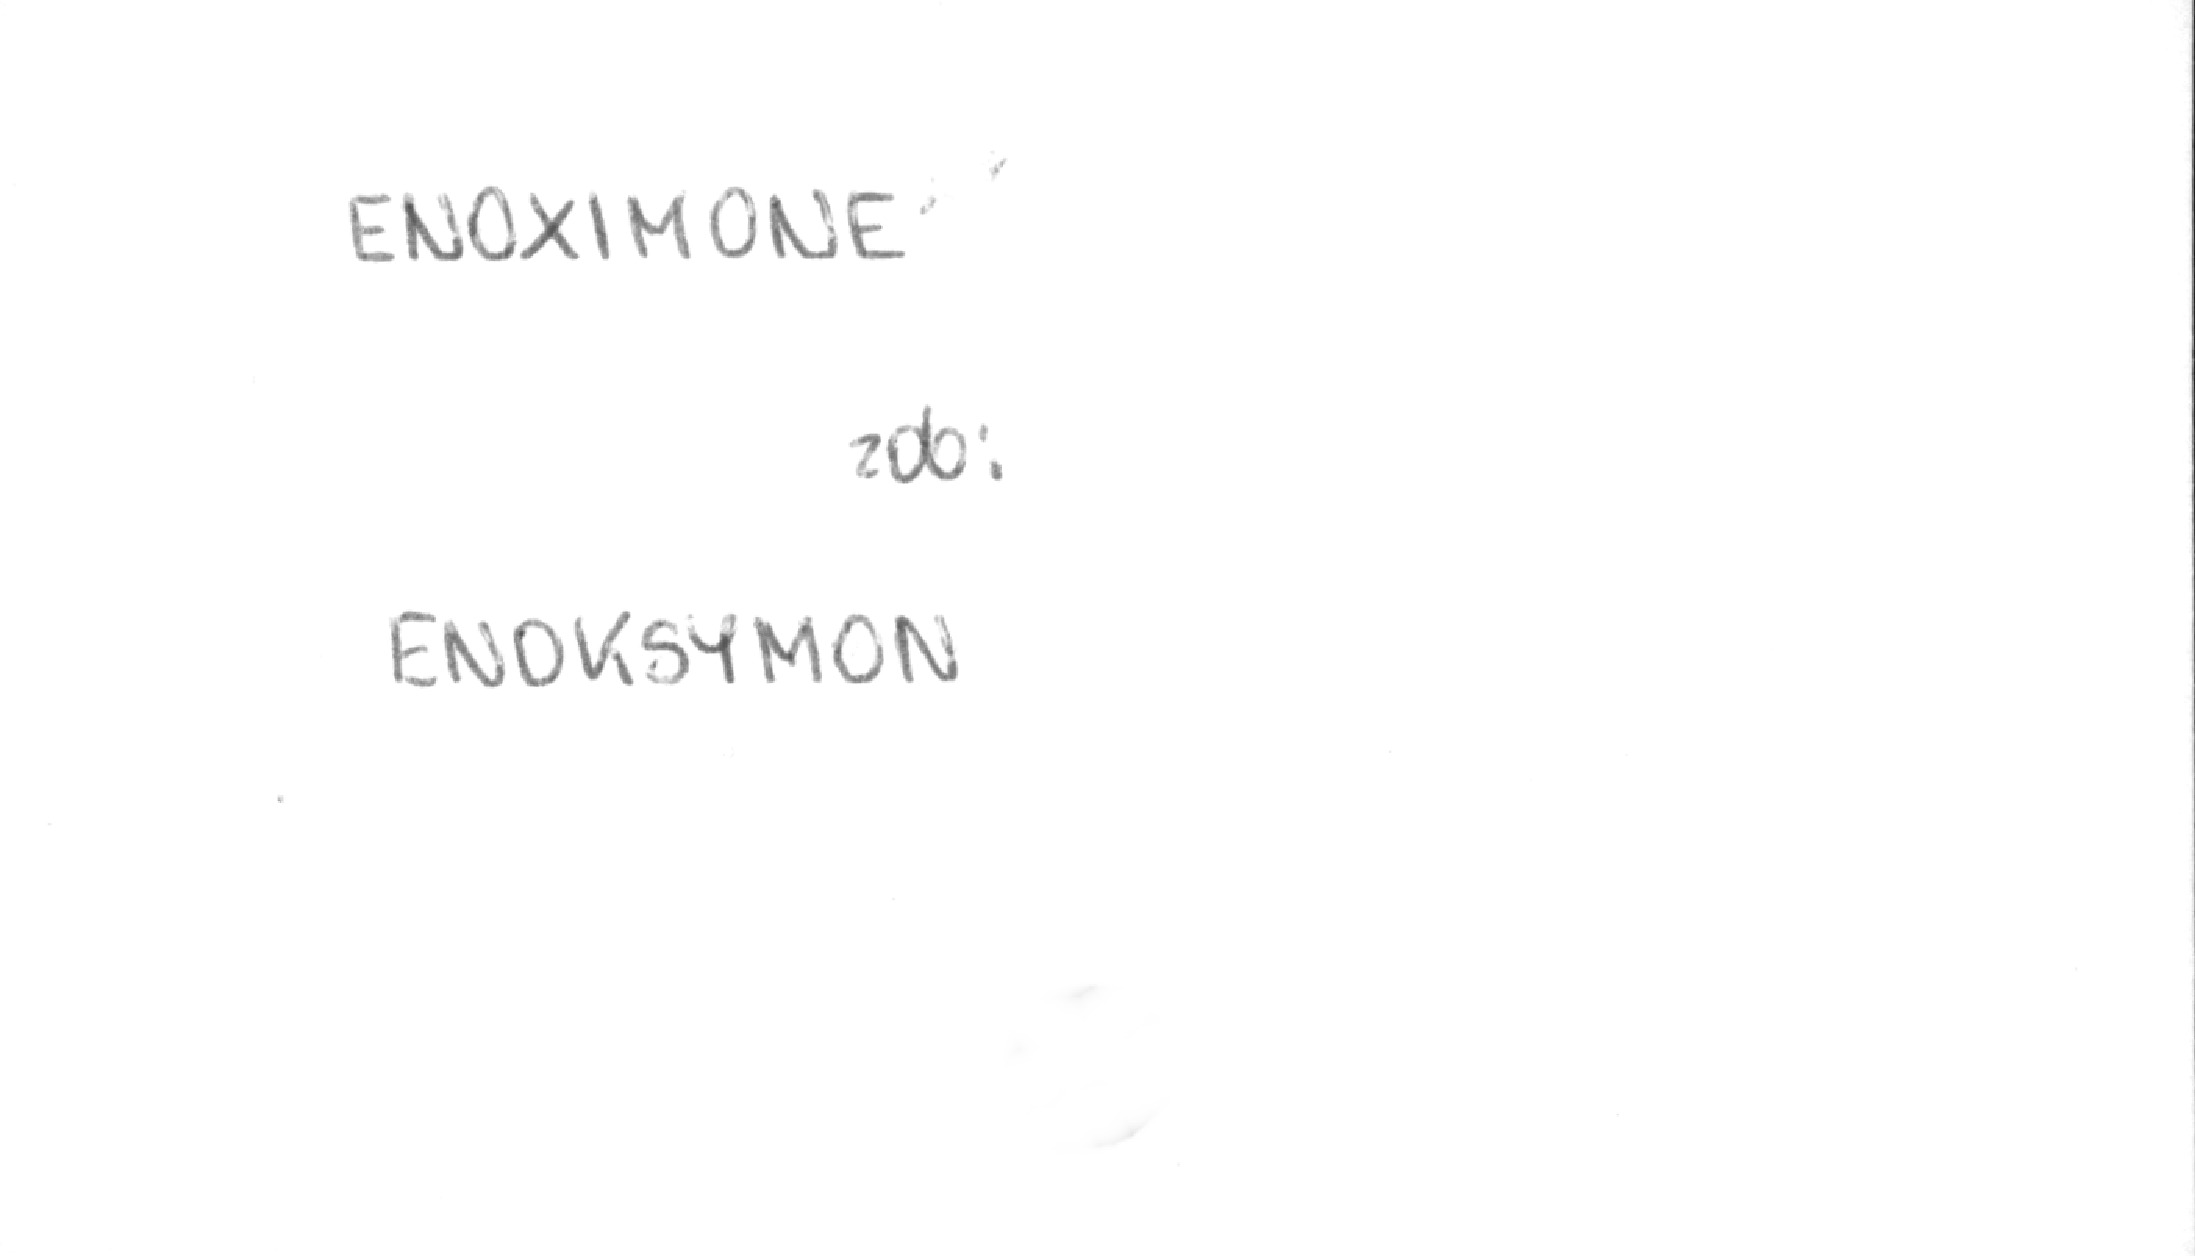 ENOXIMONE
zob:
ENOKSYMON